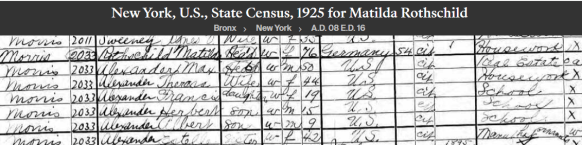 New York, U.S., State Census, 1925 for Matilda Rothschild
Bronx > New York > A.D. 08 E.D. 16
Morris 2011 Sweeney Wife W F 35
Morris 2033 Rothschild Matilda Head W F 76 Germany 54 cit 1 Housework X
Morris 2033 Alexander Max Head W M 50 U.S. cit Real Estate
Morris 2033 Alexander Theresa Wife W F 44 U.S. cit Housework X
Morris 2033 Alexander Francis daughter W F 19 U.S. cit School X
Morris 2033 Alexander Herbert son W M 15 U.S. cit School X
Morris 2033 Alexander Robert son W M 9 U.S. cit School X
Morris 2033 Alexander W F 42 U.S. cit